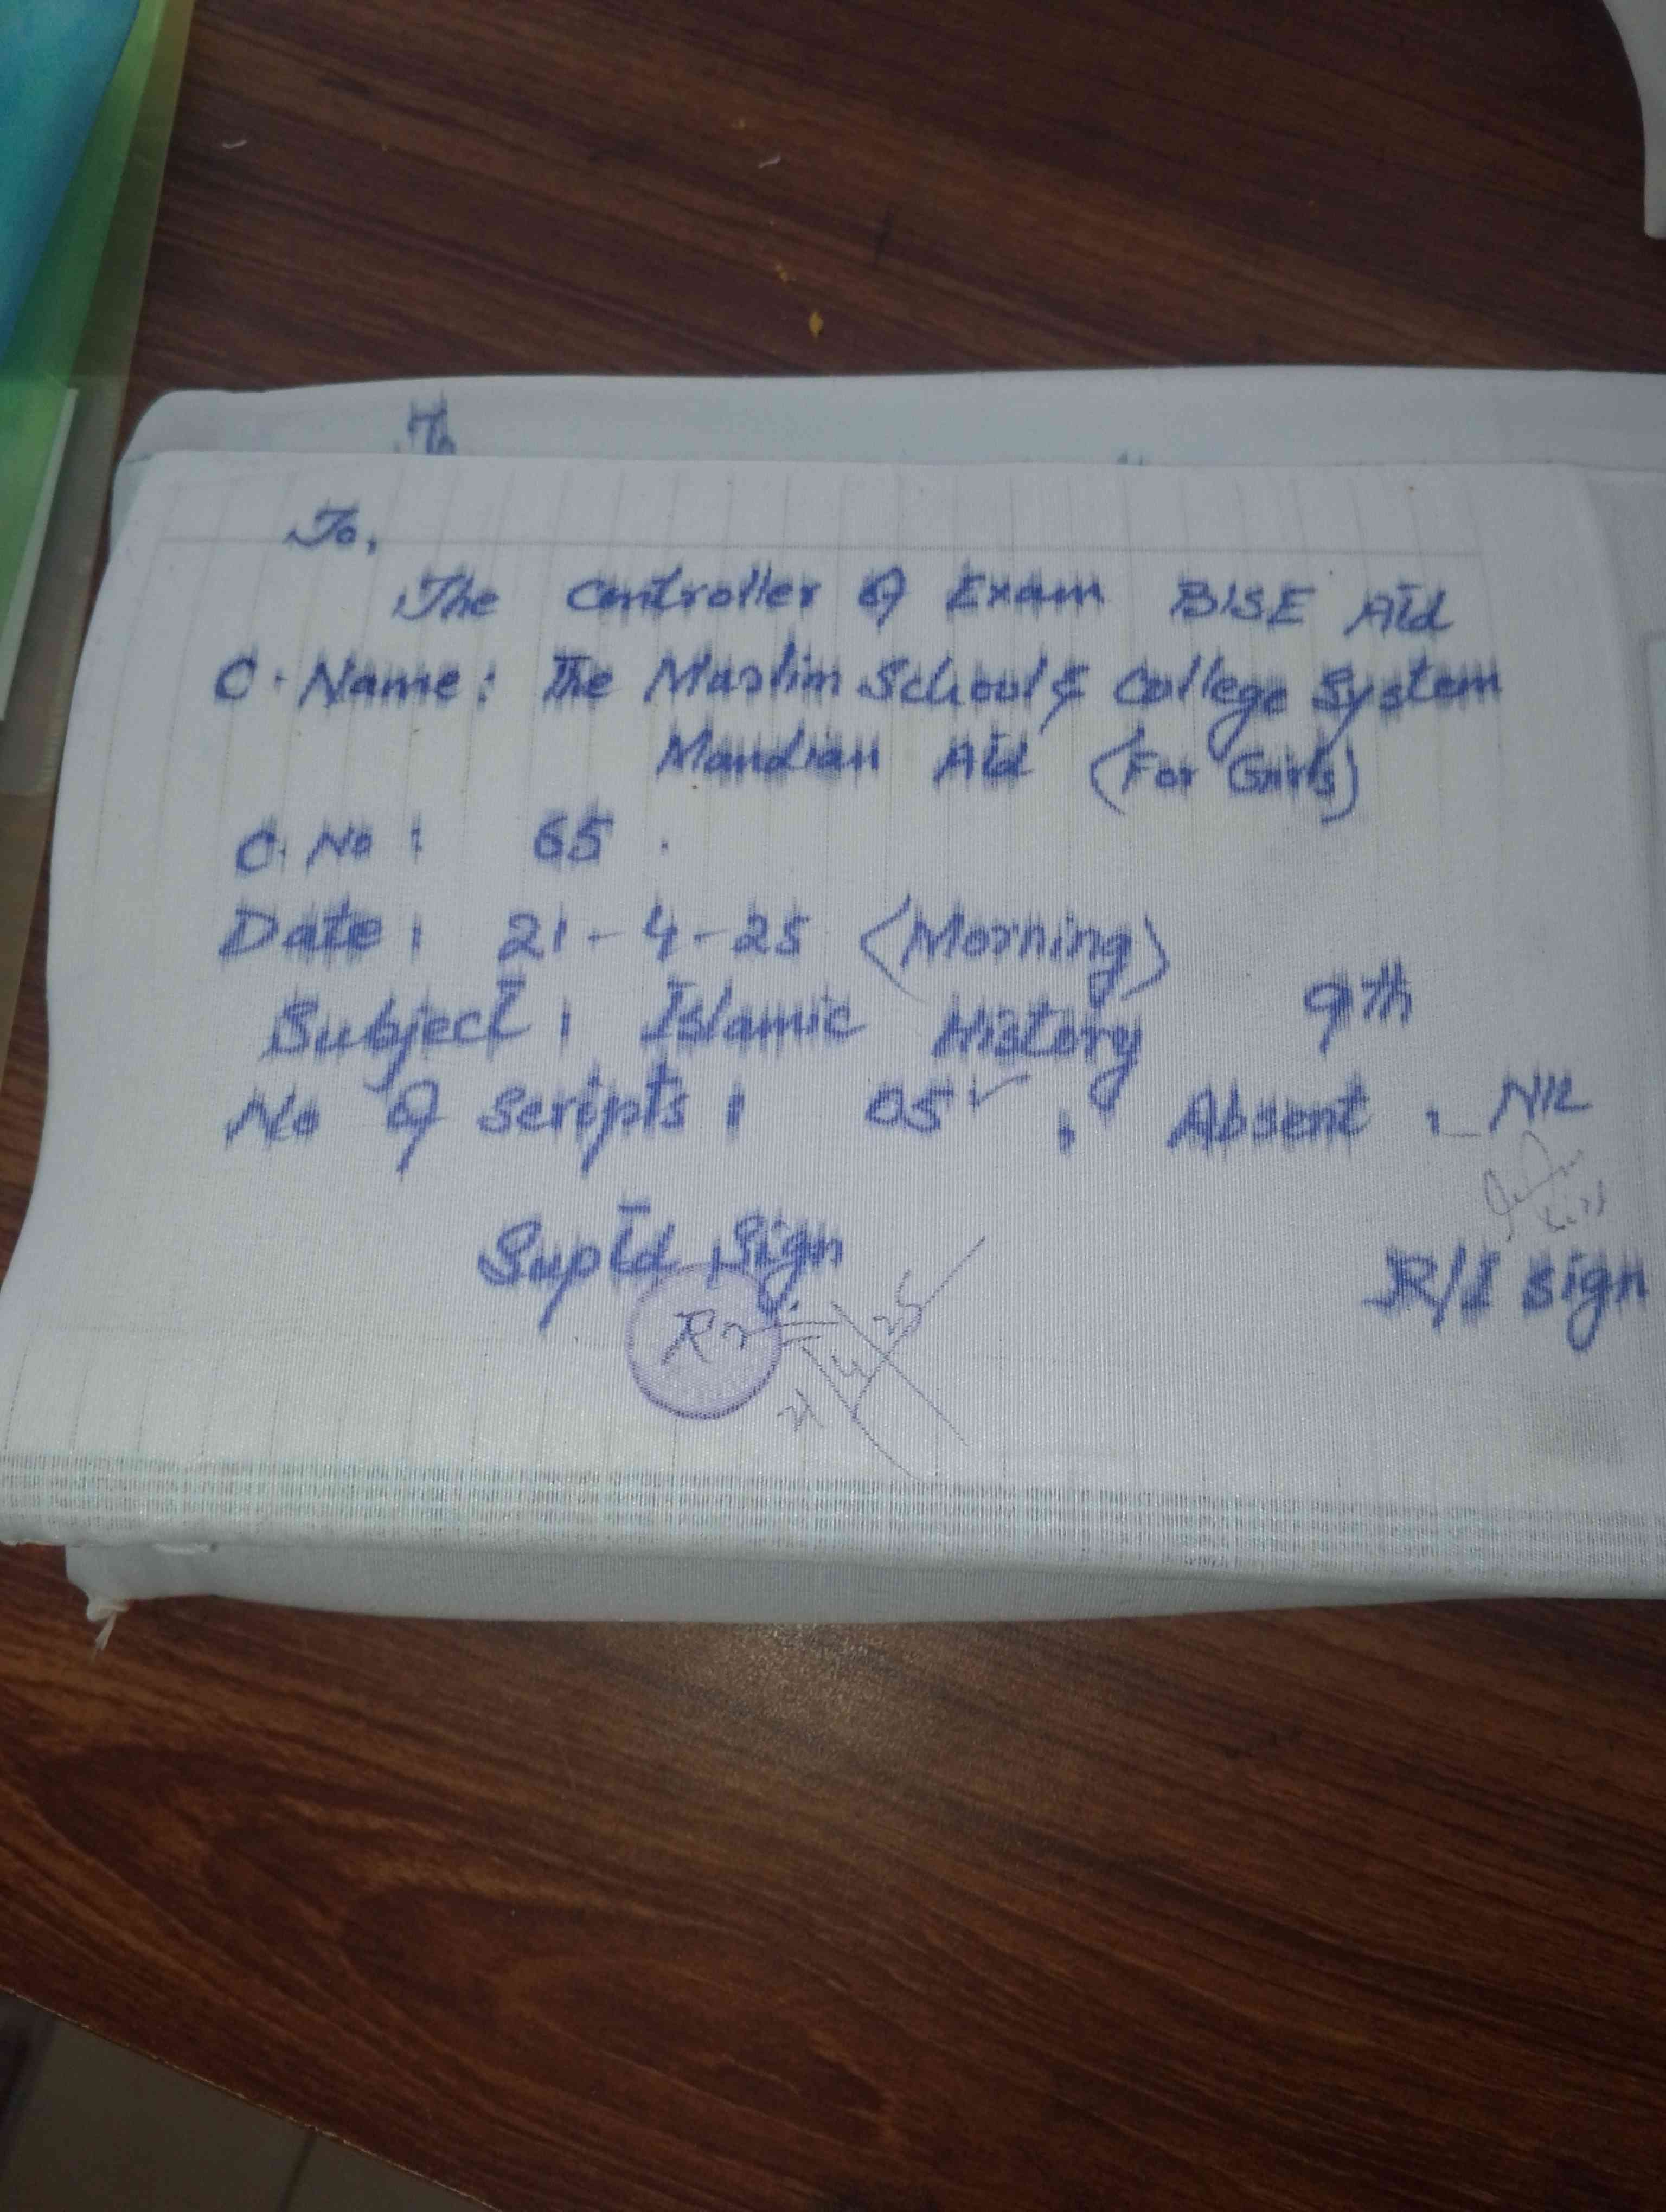 To,
The Controller of Exam BISE Atd
C. Name: The Muslim School & College System
Mandian Atd (For Girls)
C. No: 65.
Date: 21-4-25 (Morning)
Subject: Islamic History 9th
No of Scripts: 05 ✓, Absent: Nil
Suptd Sign
R/I Sign
21/4/25